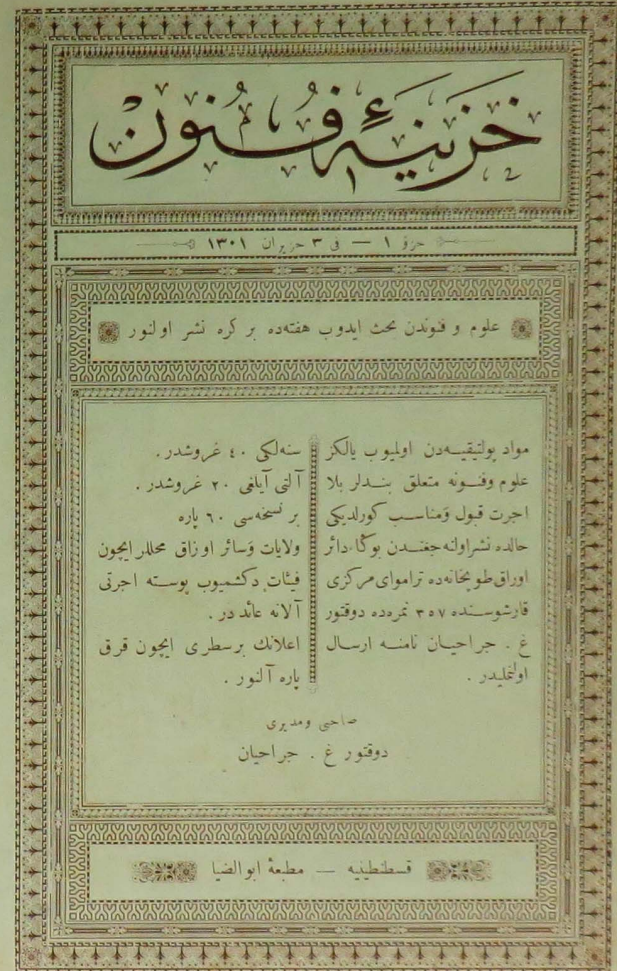 خزینهٔ فنون
جزؤ ١ — فی ٣ حزیران ١٣٠١
علوم و فنوندن بحث ایدوب هفته‌ده بر کره نشر اولنور
مواد پولتیقیه‌دن اولمیوب یالکز
علوم وفنونه متعلق بندلر بلا
اجرت قبول ومناسب کورلدیکی
حالده نشر اولنه‌جغندن بوکا دائر
اوراق طوپخانه‌ده تراموای مرکزی
قارشوسنده ٣٥٧ نمره‌ده دوقتور
غ . جراحیان نامنه ارسال
اولنملیدر .
سنه‌لکی ٤٠ غروشدر .
آلتی آیلغی ٢٠ غروشدر .
بر نسخه‌سی ٦٠ پاره
ولایات وسائر اوزاق محللر ایچون
فیئات دکشمیوب پوسته اجرتی
آلانه عائددر .
اعلانك برسطری ایچون قرق
پاره آلنور .
صاحبی ومدیری
دوقتور غ . جراحیان
قسطنطینیه — مطبعهٔ ابوالضیا